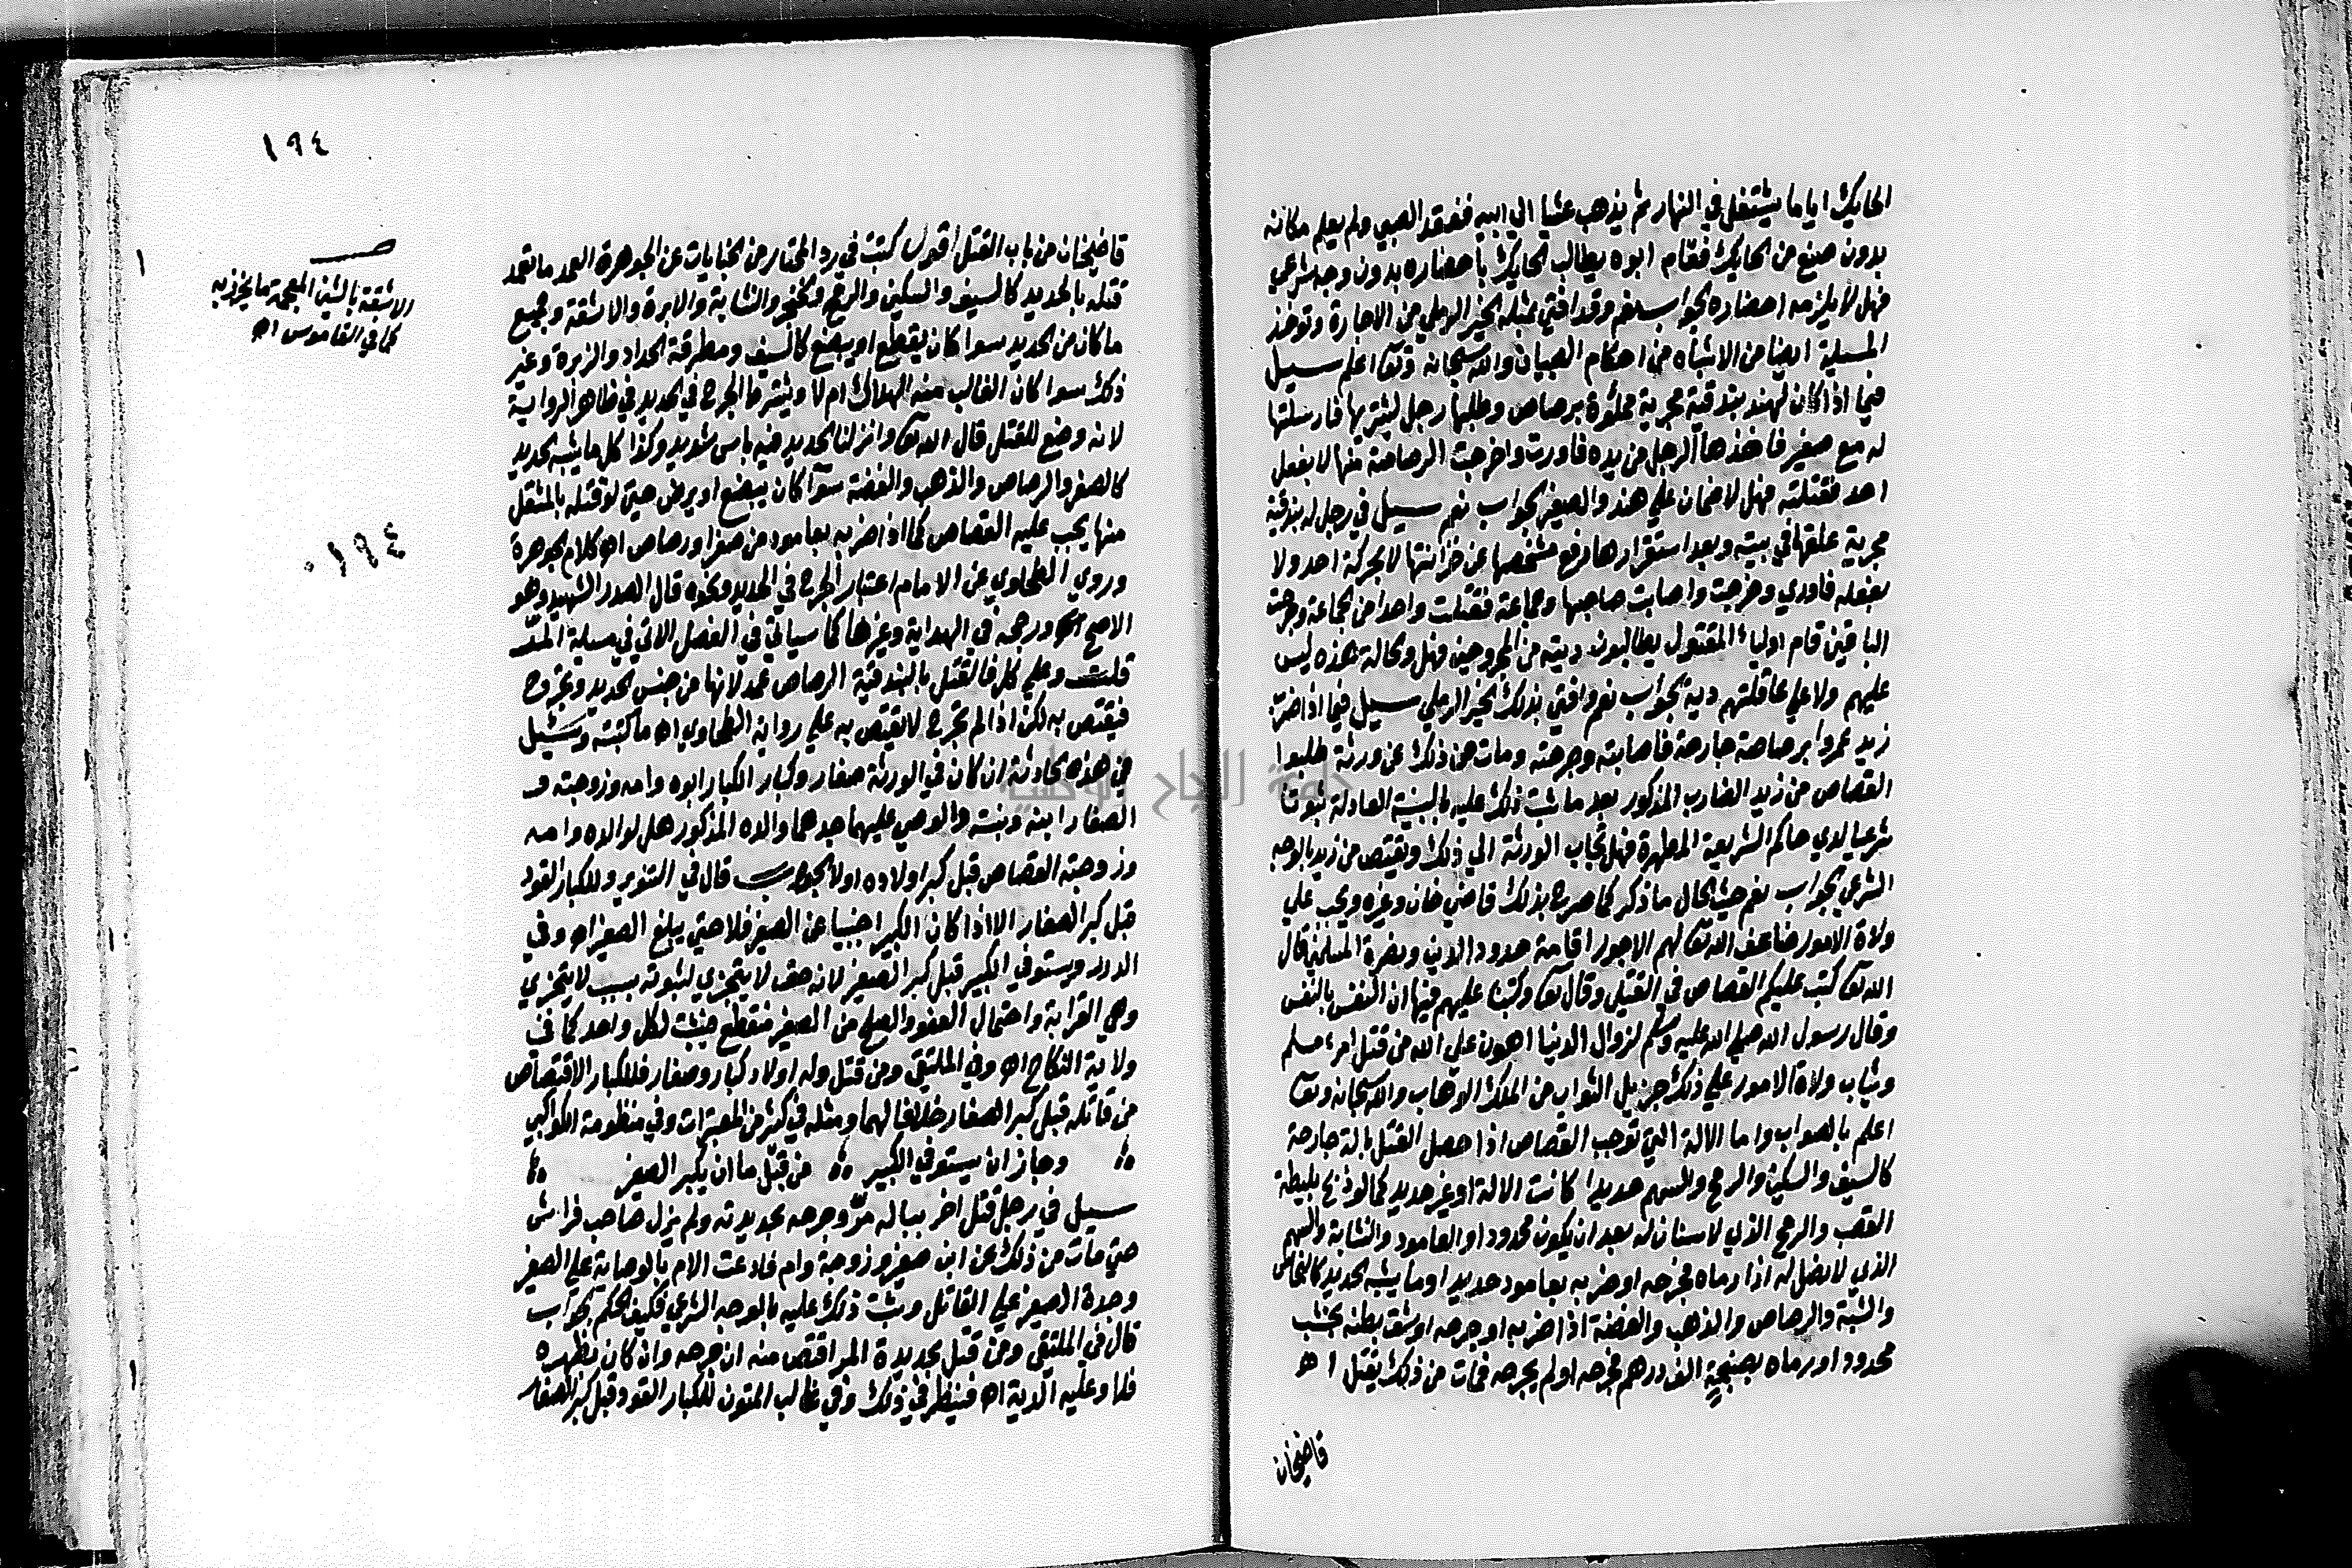 الحايك اياما يشتغل في النهار ثم يذهب عشيا الي ابيه ففقد الصبي ولم يعلم مكانه
بدون صنع من الحايك فقام ابوه يطالب الحايك باحضاره بدون وجه شرعي
فهل لا يلزمه احضاره الجواب نعم وقد افتي بمثله الخير الرملي من الاجارة وتوخذ
المسيلة ايضا من الاشباه من احكام الصبيان والله سبحانه وتعا اعلم سيل
فيما اذا كان لهند بندقية مجربة مملؤة برصاص وطلبها رجل ليشتريها فارسلتها
له مع صغير فاخذها الرجل من يده فاورت واخرجت الرصاصة منها لا بفعل
احد فقتلته فهل لا ضمان علي هند والصغير الجواب نعم سيل في رجل له بندقية
مجربة علقها في بيته وبعد استقرارها رفع مشخصها عن خزانتها لا بحركة احد ولا
بفعله فاوري وخرجت واصابت صاحبها وجماعة فقتلت واحدا من الجماعة وجرحت
الباقين قام اولياء المقتول يطالبون ديته من المجروحين فهل والحالة هذه ليس
عليهم ولا علي عاقلتهم دية الجواب نعم وافتي بذلك الخير الرملي سيل فيما اذا ضرب
زيد عمروا برصاصة جارحة فاصابته وجرحته ومات من ذلك عن ورثة طلبوا
القصاص من زيد الضارب المذكور بعد ما ثبت ذلك عليه بالبينة العادلة ثبوتا
شرعيا لدي حاكم الشريعة المطهرة فهل تجاب الورثة الي ذلك ويقتص من زيد بالوجه
الشرعي الجواب نعم حيث الحال ما ذكر كما صرح بذلك قاضي خان وغيره ويجب علي
ولاة الامور ضاعف الله تعا لهم الاجور اقامة حدود الدين ونصرة المسلمين قال
الله تعا كتب عليكم القصاص في القتلي وقال تعا وكتبنا عليهم فيها ان النفس بالنفس
وقال رسول الله صلي الله عليه وسلم لزوال الدنيا اهون علي الله من قتل امرء مسلم
ويثاب ولاة الامور علي ذلك جزيل الثواب من الملك الوهاب والله سبحانه وتعا
اعلم بالصواب واما الالة التي توجب القصاص اذا حصل القتل بالة جارحة
كالسيف والسكين والرمح والسهم حديدا كانت الالة او غير حديد كما لو ذبح بليطة
القصب والرمح الذي لا سنان له بعد ان يكون محدودا او العامود والنشابة والسهم
الذي لا نصل له اذا رماه فجرحه او ضربه بعامود حديد او ما يشبه الحديد كالنحاس
والشبة والرصاص والذهب والفضة اذا ضربه او جرحه او شق بطنه بخشب
محدود او رماه بصنجة الف درهم فجرحه او لم يجرحه فمات من ذلك يقتل اه
قاضيخان
١٩٤
قاضيخان من باب القتل اقول كتبت في رد المحتار من الجنايات عن الجوهرة العمد ما تعمد
قتله بالحديد كالسيف والسكين والرمح والخنجر والنشابة والابرة والاشفة وجميع
ما كان من الحديد سوا كان يقطع او يبضع كالسيف ومطرقة الحداد والزبرة وغير
ذلك سوا كان الغالب منه الهلاك ام لا ويشترط الجرح في الحديد في ظاهر الرواية
لانه وضع للقتل قال الله تعا وانزلنا الحديد فيه باس شديد وكذا كل ما يشبه الحديد
كالصفر والرصاص والذهب والفضة سوآ كان يبضع او يرض حتي لو قتله بالمثقل
منها يجب عليه القصاص كما اذا ضربه بعامود من صفر او رصاص اه كلام الجوهرة
وروي الطحاوي عن الامام اعتبار الجرح في الحديد ونحوه قال الصدر الشهيد وهو
الاصح اه ورجحه في الهداية وغيرها كما سياتي في الفصل الاتي في مسيلة المر
قلت وعلي كل فالقتل بالبندقية الرصاص عمد لانها من جنس الحديد وتجرح
فيقتص به لكن اذا لم تجرح لا يقتص به علي رواية الطحاوي اه ما كتبته وسيل
في هذه الحادثة ان كان في الورثة صغار وكبار الكبار ابوه وامه وزوجته و
الصغار ابنه وبنته والوصي عليهما جدهما والده المذكور هل لوالده وامه
وزوجته القصاص قبل كبر اولاده او لا الجواب قال في التنوير وللكبار القود
قبل كبر الصغار الا اذا كان الكبير اجنبيا عن الصغير فلا حتي يبلغ الصغير اه وفي
الدرر ويستوفي الكبير قبل كبر الصغير لانه حق لا يتجزي لثبوته بسبب لا يتجزي
وهي القرابة واحتمال العفو والصلح من الصغير منقطع فيثبت لكل واحد كما في
ولاية النكاح اه وفي الملتقي ومن قتل وله اولاد كبار وصغار فللكبار الاقتصاص
من قاتله قبل كبر الصغار خلافا لهما ومثله في كثير من المعتبرات وفي منظومة الكواكبي
وجاز ان يستوفي الكبير من قبل ما ان يكبر الصغير
سيل في رجل قتل اخر ببالة مرّ وجرحه بحديدته ولم يزل صاحب فراش
حتي مات من ذلك عن ابن صغير وزوجة وام فادعت الام بالوصاية علي الصغير
وجدة الصغير علي القاتل وثبت ذلك عليه بالوجه الشرعي فكيف الحكم الجواب
قال في الملتقي ومن قتل بحديدة المر اقتص منه ان جرحه وان كان بظهره
فلا وعليه الدية اه فينظر في ذلك وفي غالب المتون للكبار القود قبل كبر الصغار
الاشفة بالشين المعجمة ما يخرز به
كما في القاموس اه
١٩٤